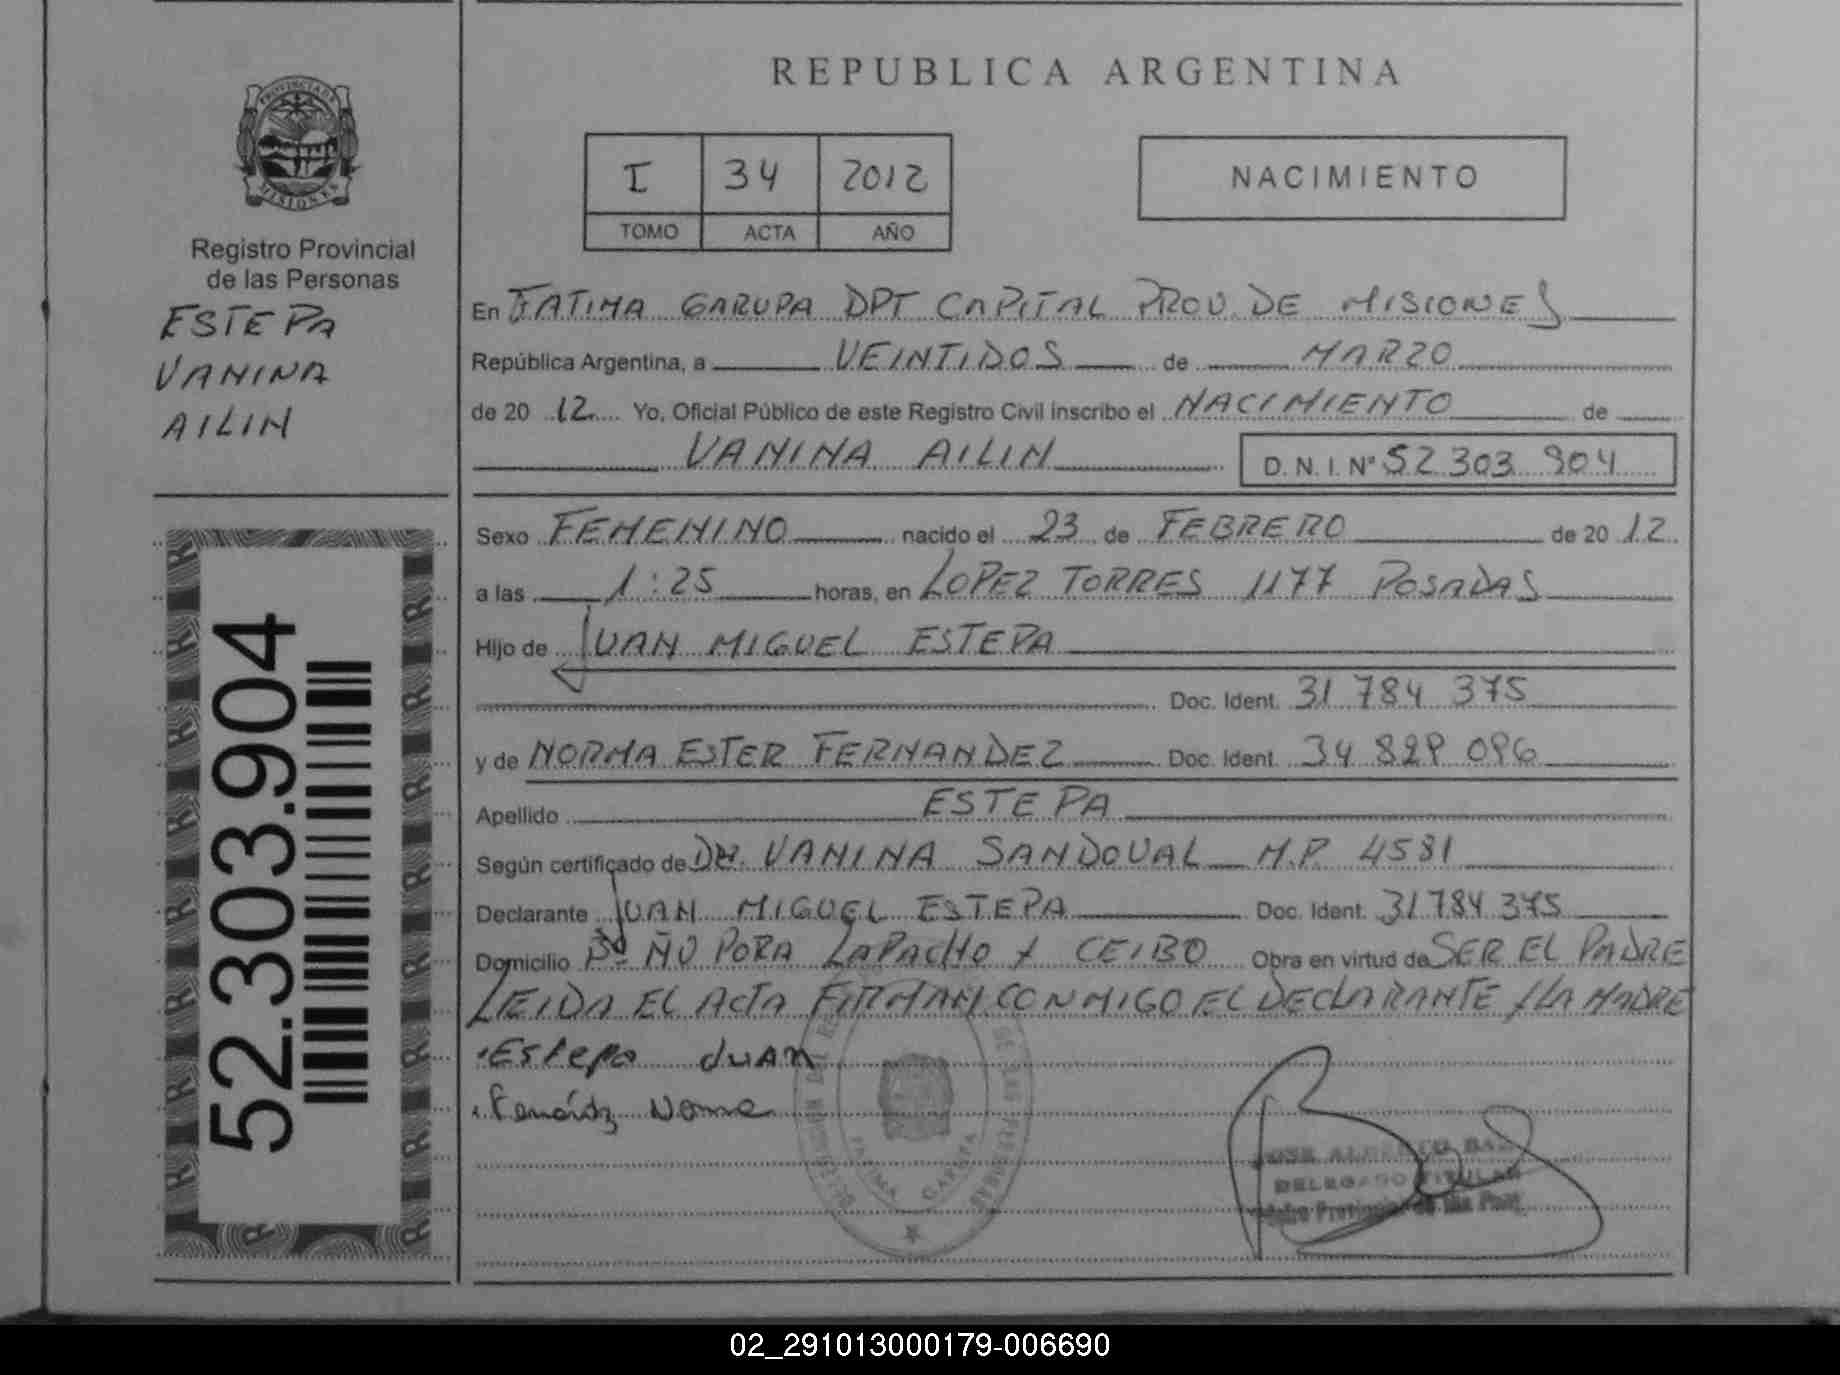 REPUBLICA ARGENTINA
I 34 2012
TOMO ACTA AÑO
NACIMIENTO
PROVINCIA DE
MISIONES
Registro Provincial
de las Personas
ESTEPA
VANINA
AILIN
52.303.904
En FATIMA GARUPA DPT CAPITAL PROV. DE MISIONES
República Argentina, a VEINTIDOS de MARZO
de 20 12 Yo, Oficial Público de este Registro Civil inscribo el NACIMIENTO de
VANINA AILIN D.N.I. Nº 52 303 904
Sexo FEMENINO nacido el 23 de FEBRERO de 20 12
a las 1:25 horas, en LOPEZ TORRES 1177 POSADAS
Hijo de JUAN MIGUEL ESTEPA
Doc. Ident. 31 784 375
y de NORMA ESTER FERNANDEZ Doc. Ident. 34 829 096
Apellido ESTEPA
Según certificado de VANINA SANDOVAL M.P. 4581
Declarante JUAN MIGUEL ESTEPA Doc. Ident. 31 784 375
Domicilio Bº ÑU PORA LAPACHO Y CEIBO Obra en virtud de SER EL PADRE
LEIDA EL ACTA FIRMAN CONMIGO EL DECLARANTE Y LA MADRE
Estepa JUAN
Norma
FATIMA GARUPA
JOSE ALBERTO
DELEGADO TITULAR
02_291013000179-006690